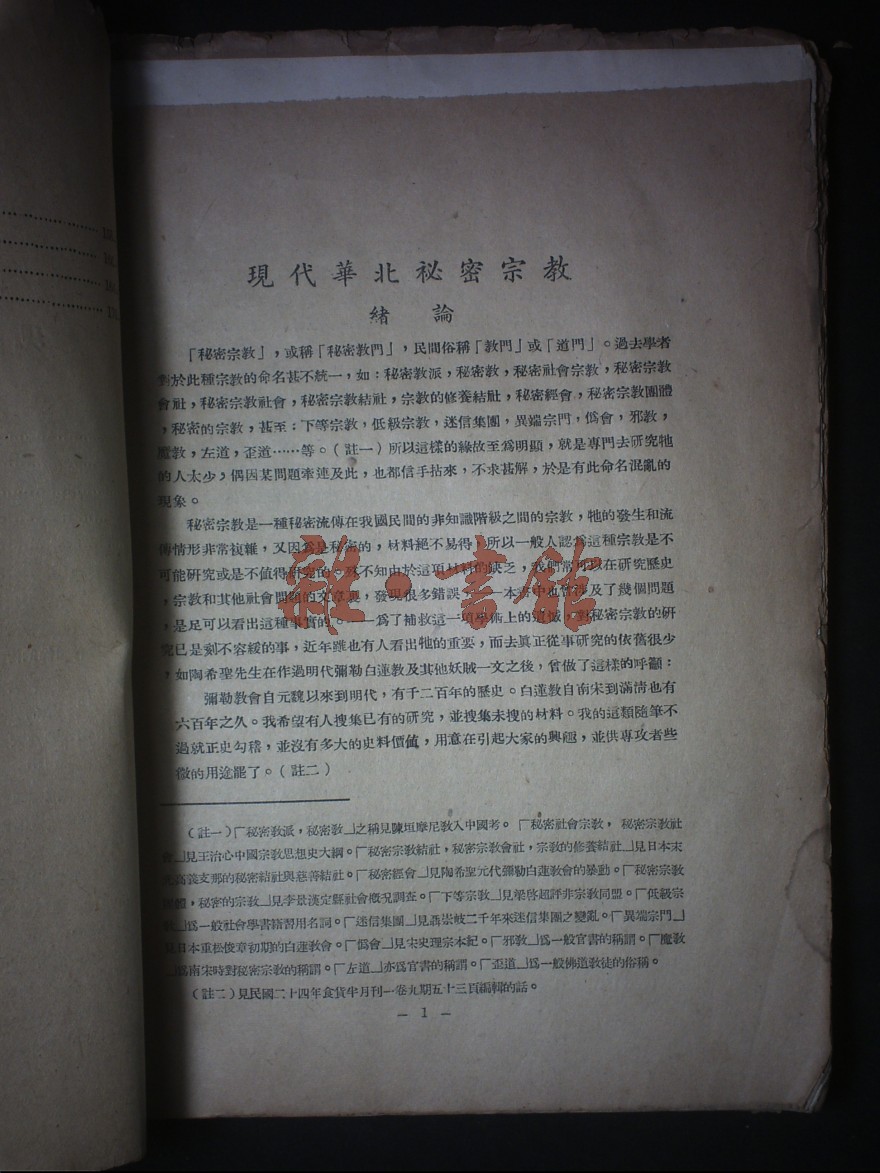 現代華北祕密宗教
緒 論
「秘密宗教」，或稱「秘密教門」，民間俗稱「教門」或「道門」。過去學者
對於此種宗教的命名甚不統一，如：秘密教派，秘密教，秘密社會宗教，秘密宗教
會社，秘密宗教社會，秘密宗教結社，宗教的修養結社，秘密經會，秘密宗教團體
，秘密的宗教，甚至：下等宗教，低級宗教，迷信集團，異端宗門，僞會，邪教，
魔教，左道，歪道……等。（註一）所以這樣的緣故至爲明顯，就是專門去研究牠
的人太少，偶因某問題牽連及此，也都信手拈來，不求甚解，於是有此命名混亂的
現象。
秘密宗教是一種秘密流傳在我國民間的非知識階級之間的宗教，牠的發生和流
傳情形非常複雜，又因爲是秘密的，材料絕不易得，所以一般人認爲這種宗教是不
可能研究或是不值得研究的。殊不知由於這項材料的缺乏，我們常可以在研究歷史
，宗教和其他社會問題的文章裏，發現很多錯誤，——本書中也曾涉及了幾個問題
，是足可以看出這種事實的。——爲了補救這一項學術上的遺憾，對秘密宗教的研
究已是刻不容緩的事，近年雖也有人看出牠的重要，而去眞正從事研究的依舊很少
，如陶希聖先生在作過明代彌勒白蓮教及其他妖賊一文之後，曾做了這樣的呼籲：
彌勒教會自元魏以來到明代，有千二百年的歷史。白蓮教自南宋到滿清也有
六百年之久。我希望有人搜集已有的研究，並搜集未搜的材料。我的這類隨筆不
過就正史勾稽，並沒有多大的史料價値，用意在引起大家的興趣，並供專攻者些
微的用途罷了。（註二）
（註一）「秘密教派，秘密教」之稱見陳垣摩尼教入中國考。「秘密社會宗教，秘密宗教社
會」見王治心中國宗教思想史大綱。「秘密宗教結社，秘密宗教會社，宗教的修養結社」見日本末
光高義支那的秘密結社與慈善結社。「秘密經會」見陶希聖元代彌勒白蓮教會的暴動。「秘密宗教
團體，秘密的宗教」見李景漢定縣社會概況調查。「下等宗教」見梁啓超評非宗教同盟。「低級宗
教」爲一般社會學書籍習用名詞。「迷信集團」見聶崇岐二千年來迷信集團之變亂。「異端宗門」
見日本重松俊章初期的白蓮教會。「僞會」見宋史理宗本紀。「邪教」爲一般官書的稱謂。「魔教
」爲南宋時對秘密宗教的稱謂。「左道」亦爲官書的稱謂。「歪道」爲一般佛道教徒的俗稱。
（註二）見民國二十四年食貨半月刊一卷九期五十三頁編輯的話。
— 1 —